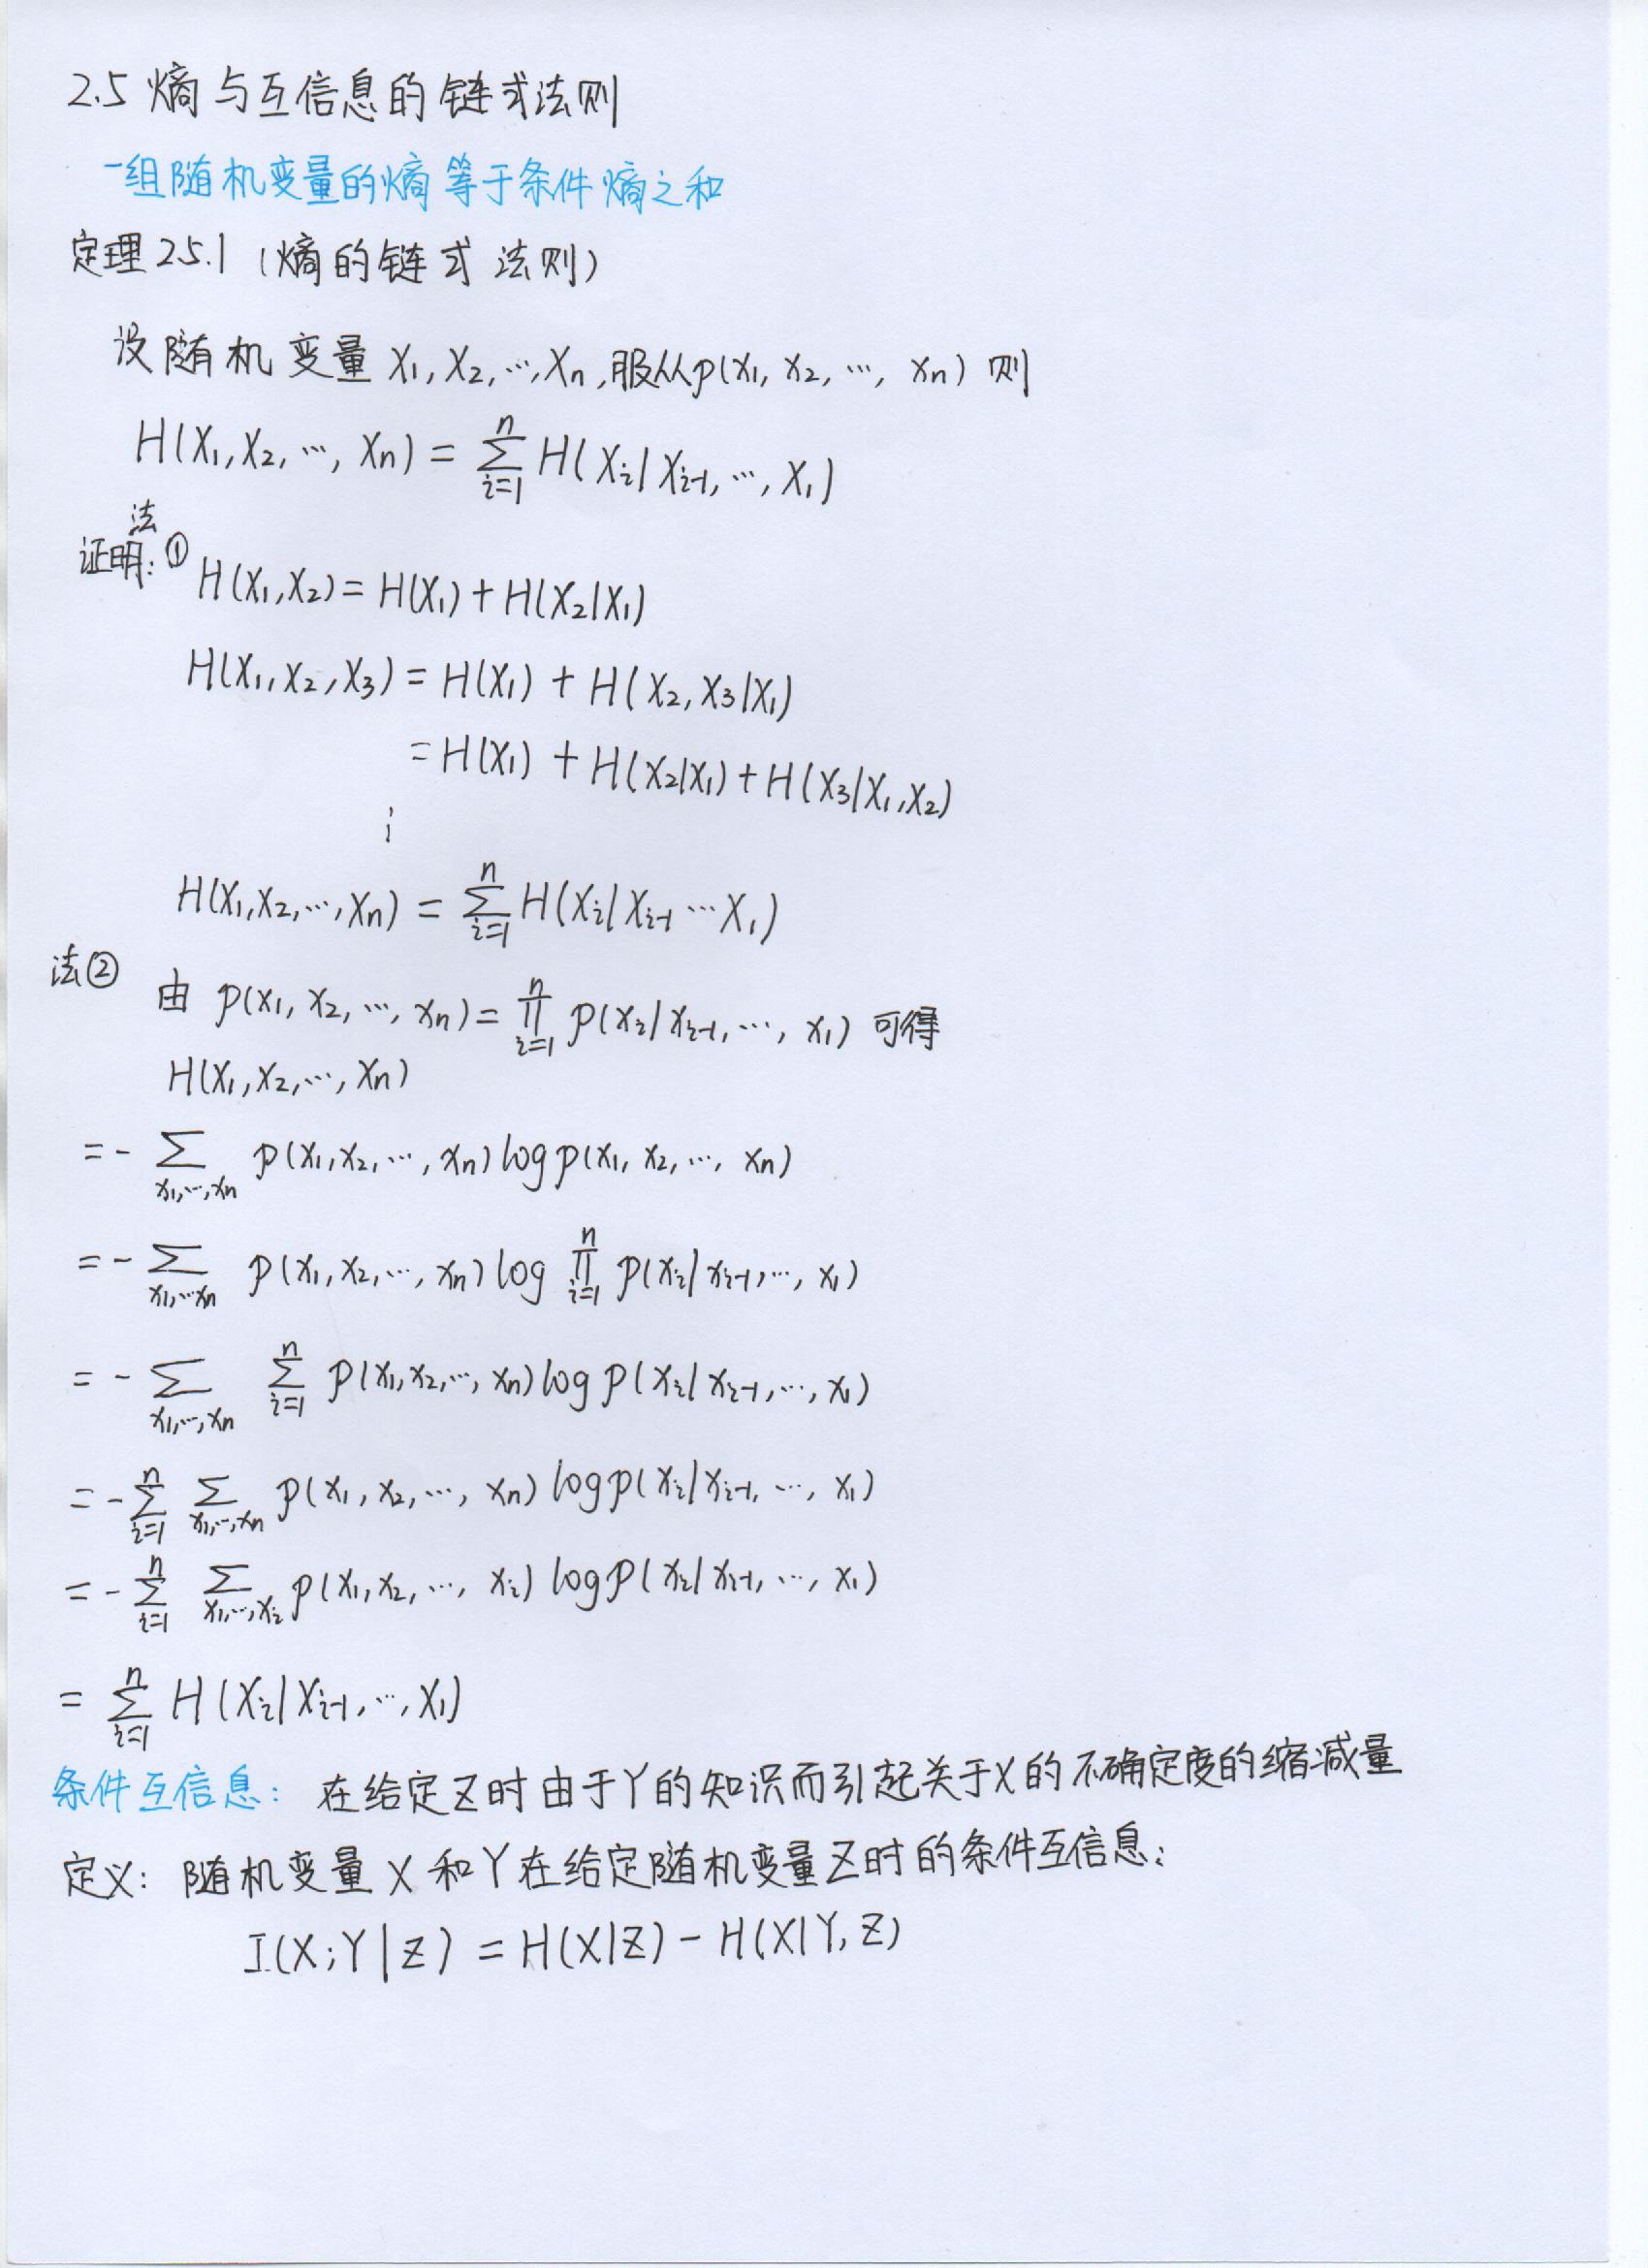 2.5 熵与互信息的链式法则
一组随机变量的熵等于条件熵之和
定理2.5.1 (熵的链式法则)
设随机变量 X₁, X₂, …, Xₙ, 服从p(x₁, x₂, …, xₙ) 则
H(X₁, X₂, …, Xₙ) = ∑ⁿᵢ₌₁ H(Xᵢ|Xᵢ₋₁, …, X₁)
证明: 法①
H(X₁,X₂) = H(X₁) + H(X₂|X₁)
H(X₁,X₂,X₃) = H(X₁) + H(X₂, X₃|X₁)
= H(X₁) + H(X₂|X₁) + H(X₃|X₁,X₂)
⋮
H(X₁,X₂,…,Xₙ) = ∑ⁿᵢ₌₁ H(Xᵢ|Xᵢ₋₁ … X₁)
法②
由 p(x₁, x₂, …, xₙ) = ∏ⁿᵢ₌₁ p(xᵢ|xᵢ₋₁, …, x₁) 可得
H(X₁, X₂, …, Xₙ)
= - ∑ₓ₁,…,ₓₙ p(x₁,x₂,…,xₙ) log p(x₁, x₂, …, xₙ)
= - ∑ₓ₁,…ₓₙ p(x₁,x₂,…,xₙ) log ∏ⁿᵢ₌₁ p(xᵢ|xᵢ₋₁,…, x₁)
= - ∑ₓ₁,…,ₓₙ ∑ⁿᵢ₌₁ p(x₁,x₂,…, xₙ) log p(xᵢ|xᵢ₋₁,…, x₁)
= - ∑ⁿᵢ₌₁ ∑ₓ₁,…,ₓₙ p(x₁, x₂, …, xₙ) log p(xᵢ|xᵢ₋₁, …, x₁)
= - ∑ⁿᵢ₌₁ ∑ₓ₁,…,ₓᵢ p(x₁, x₂, …, xᵢ) log p(xᵢ|xᵢ₋₁, …, x₁)
= ∑ⁿᵢ₌₁ H(Xᵢ|Xᵢ₋₁, …, X₁)
条件互信息: 在给定Z时由于Y的知识而引起关于X的不确定度的缩减量
定义: 随机变量X和Y在给定随机变量Z时的条件互信息:
I(X;Y|Z) = H(X|Z) - H(X|Y,Z)